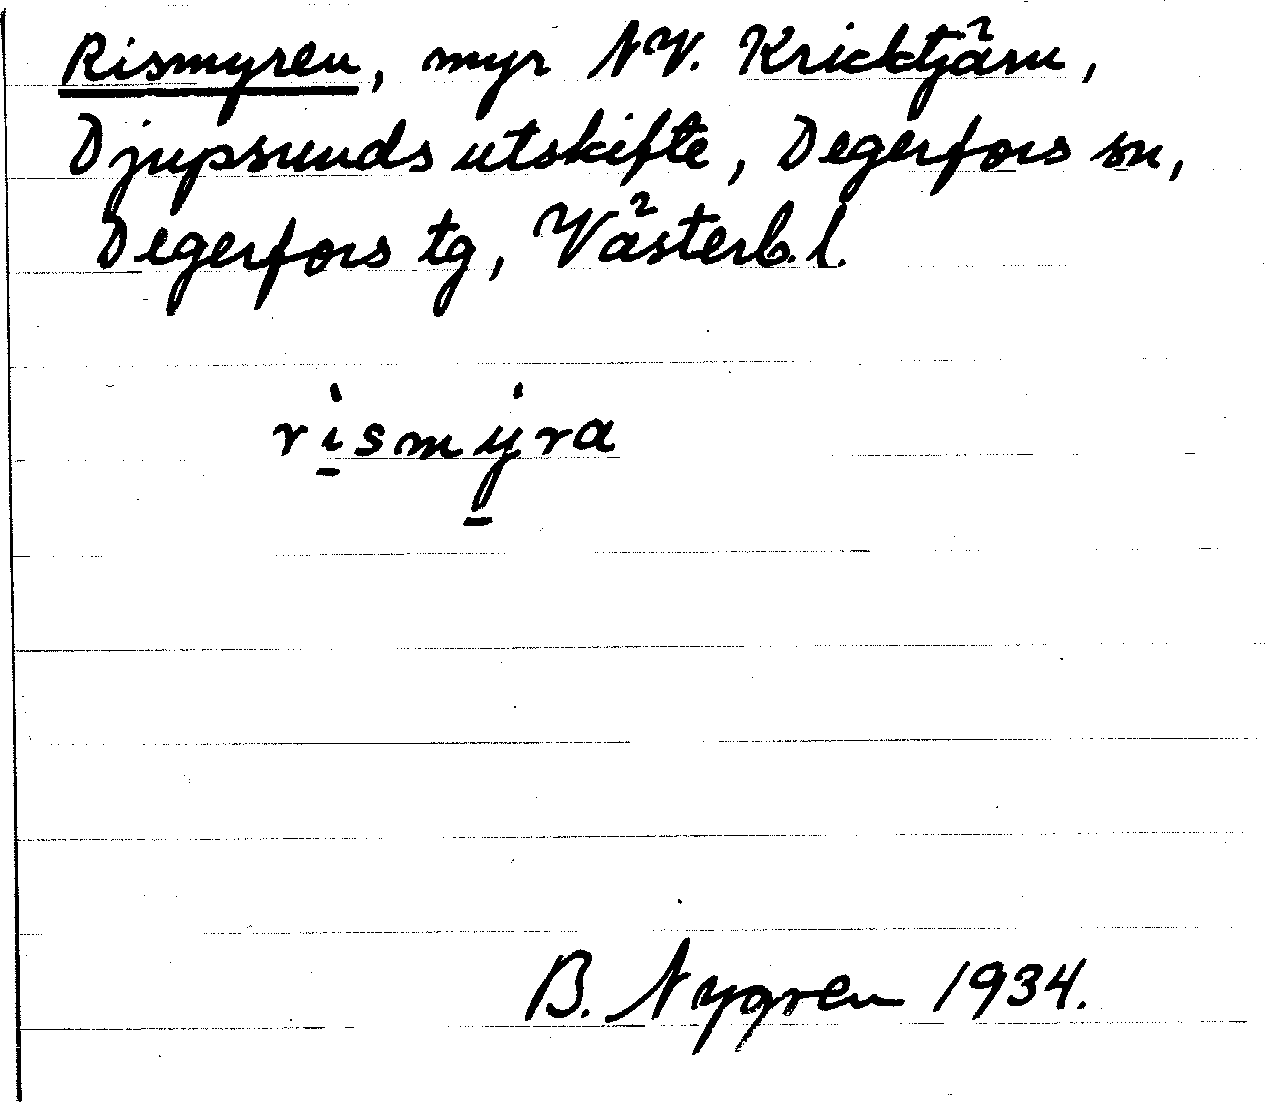 Rismyren, myr NV. Kricktjärn,
Djupsunds utskifte, Degerfors sn,
Degerfors tg, Västerb. l.
rismyra
B. Nygren 1934.